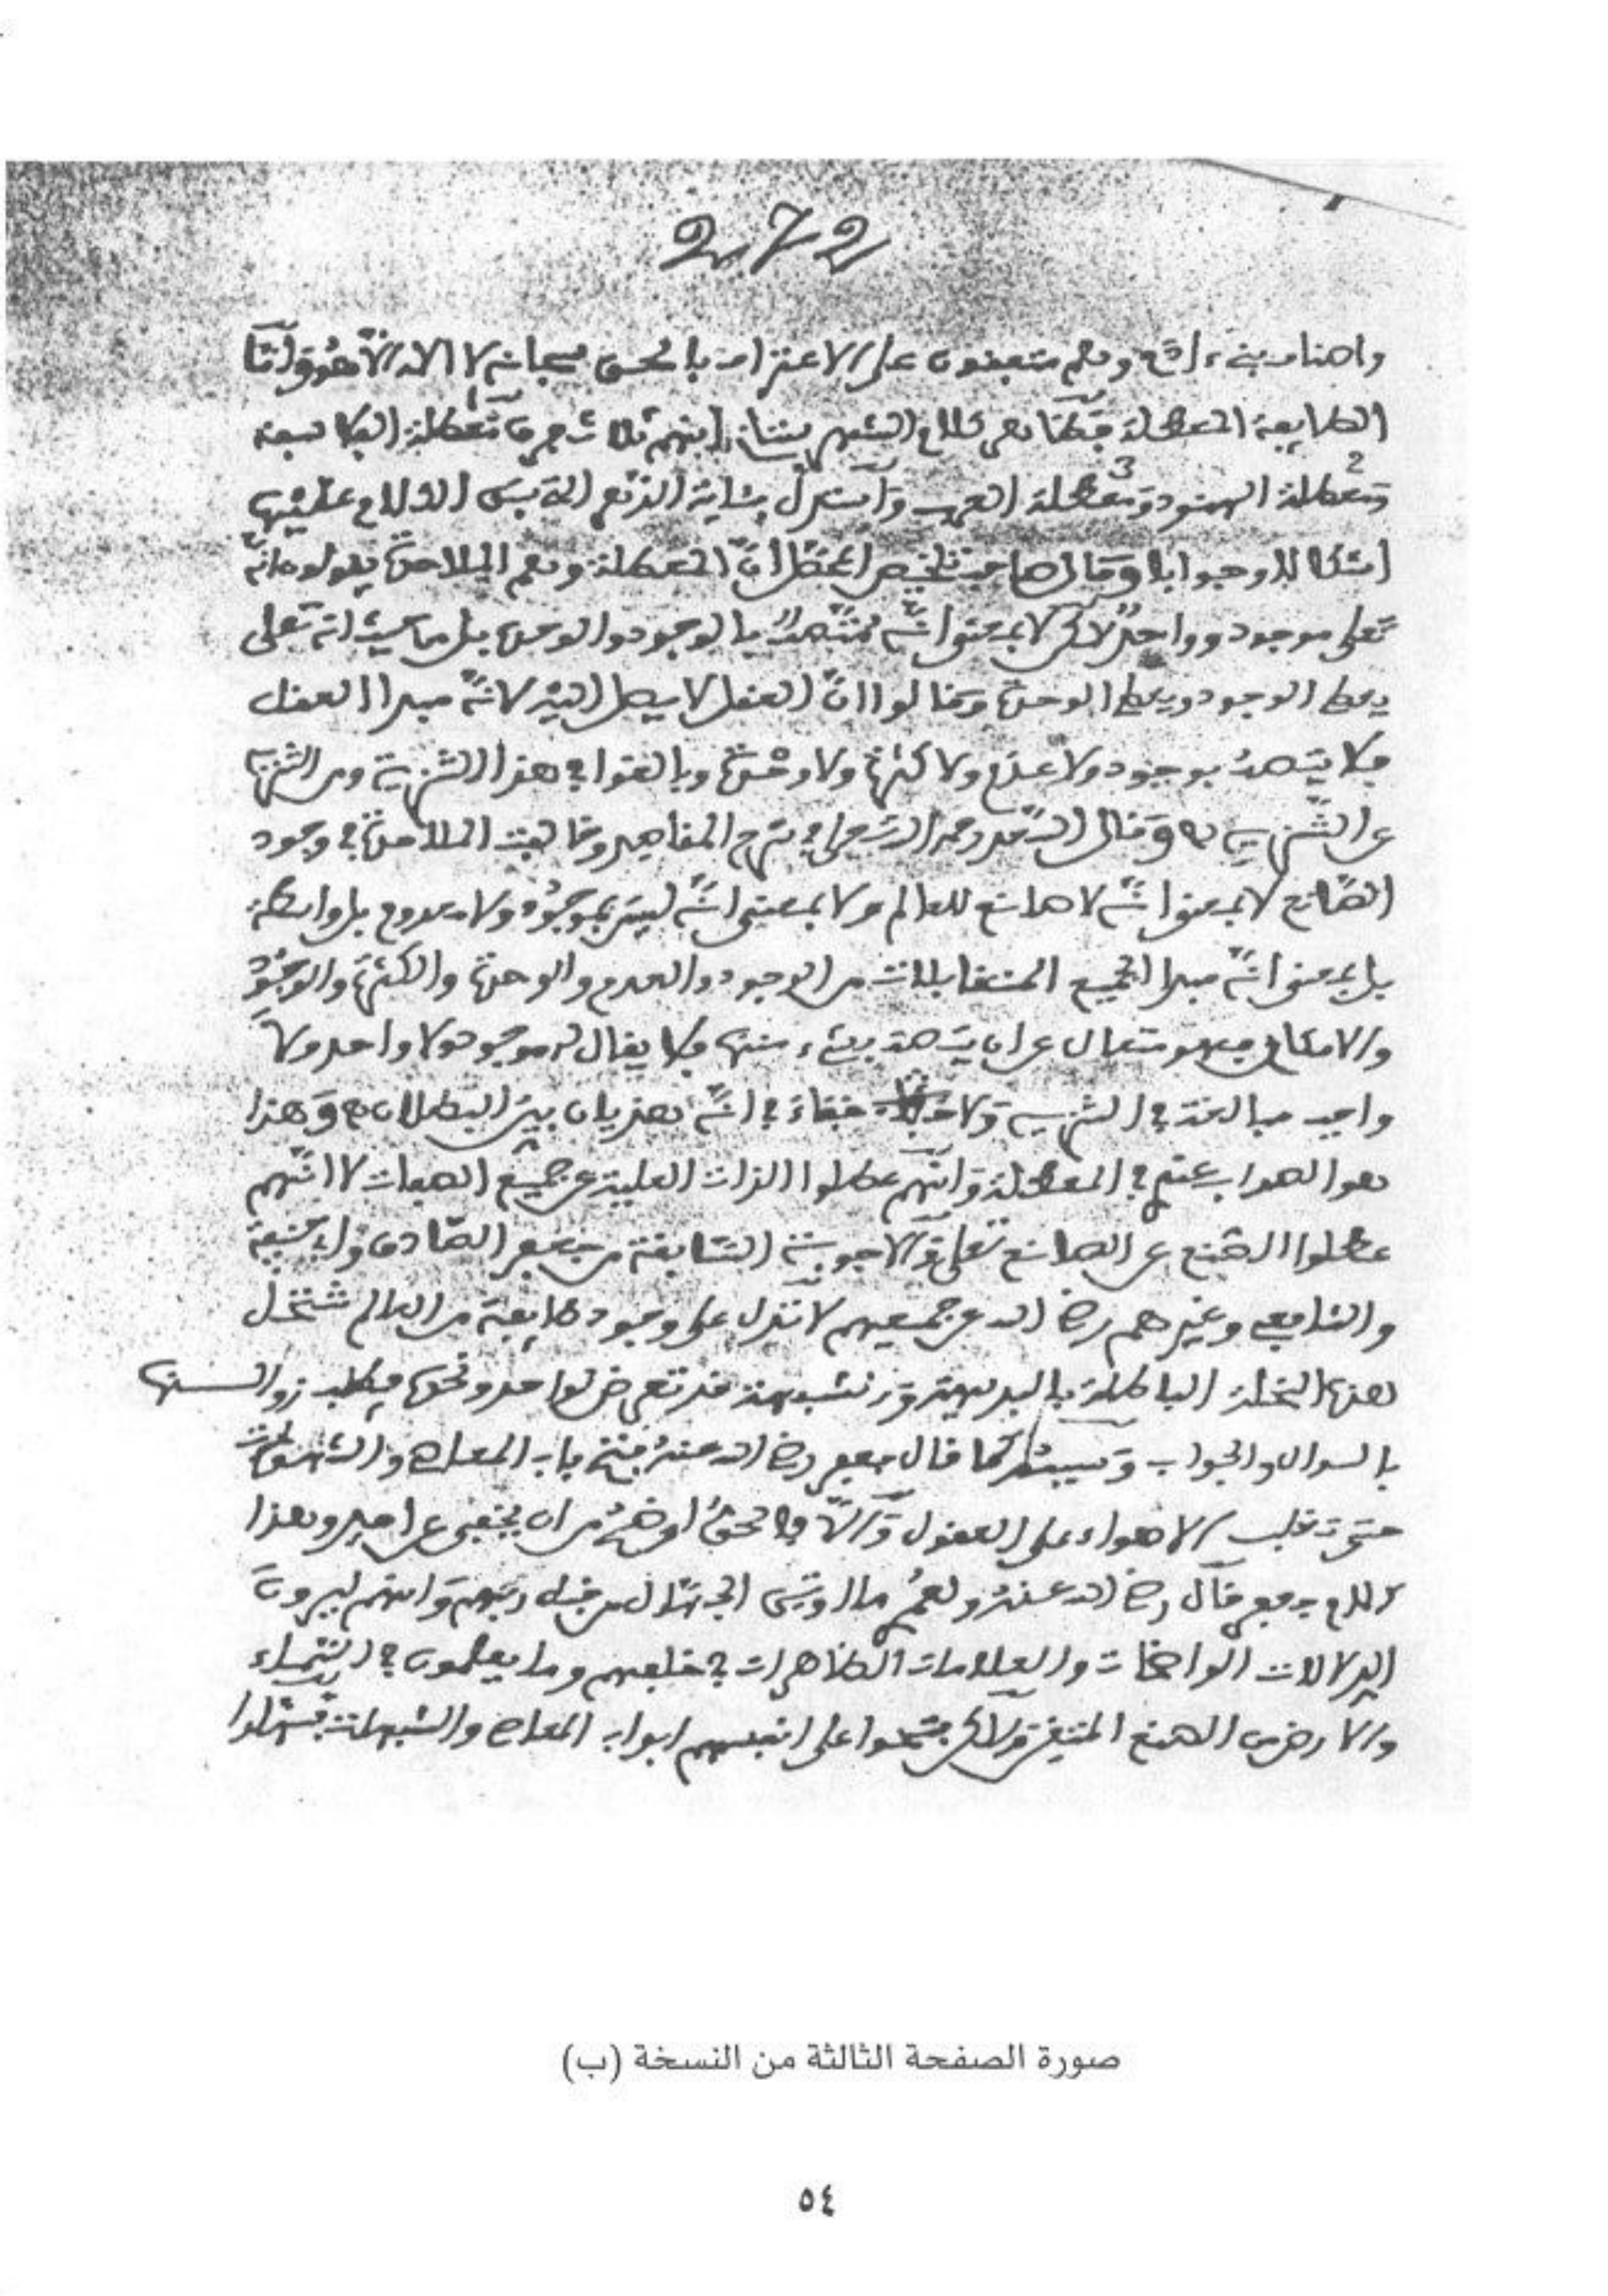 272
واصناف بني ادم وهم متفقون على الاعتراف بالحق سبحانه لا اله الا هو وامّا
الطايفة المعطلة فظاهر كلام الشهرستاني انهم ثلاث فرق معطلة الفلاسفة
2 ومعطلة الهنود 3 ومعطلة العرب واستدل بئاية الزخرف التي بسط الكلام عليها
اشكالا وجوابا وقال صاحب تلخيص المحصل انّ المعطلة وهم الملاحدة يقولون انّه
تعلى موجود وواحد لاكن لا بمعنى انّه متّصف بالوجود والوحدة بل من حيث انه تعلى
يعطي الوجود ويعطي الوحدة وقالوا انّ العقل لا يصل اليه لانّه مبدا العقل
فلا يتصف بوجود ولا عدم ولا كثرة ولا وحدة وبالغوا في هذا التنزيه ومن التنزيه
عن التنزيه ه وقال السّعد رحمه الله تعلى في شرح المقاصد وخالفت الملاحدة في وجود
الصّانع لا بمعنى انّه لا صانع للعالم ولا بمعنى انّه ليس بموجود ولا معدوم بل واسطة
بل بمعنى انّه مبدا لجميع المتقابلات من الوجود والعدم والوحدة والكثرة والوجوب
والامكان فهو متعال عن ان يتصف بشيء منها فلا يقال له موجود ولا واحد ولا
واجب مبالغة في التنزيه ولا خفاء في انّه هذيان بيّن البطلان ه وهذا
هو الصواب عنهم في المعطلة وانّهم عطلوا الذات العلية عن جميع الصفات لا انّهم
عطلوا الصّنع عن الصانع تعلى والاجوبة السّابقة من جعفر الصّادق وابي حنيفة
والشافعي وغيرهم رضي الله عن جميعهم لا تدل على وجود طايفة من العالم تنتحل
هذه النحلة الباطلة بالبديهة ونشبهة قد تعرض لواحد ونحوه فيطلب زوالها
بالسوال والجواب وسببه كما قال جعفر رضي الله عنه فتح باب المعاصي والشهوات
حتى تغلب الاهواء على العقول والّا فالحق اوضح من ان يخفى على احد وهذا
كلام جعفر قال رضي الله عنه ولعمري ما اوتي الجهّال من قبل ربهم وانهم ليرون
الدلالات الواضحات والعلامات الظاهرات في خلقهم وما يعلمون في السّماء
والارض من الصنع المتقن ولاكن فتحوا على انفسهم ابواب المعاصي والشهوات فسهلوا
صورة الصفحة الثالثة من النسخة (ب)
٥٤